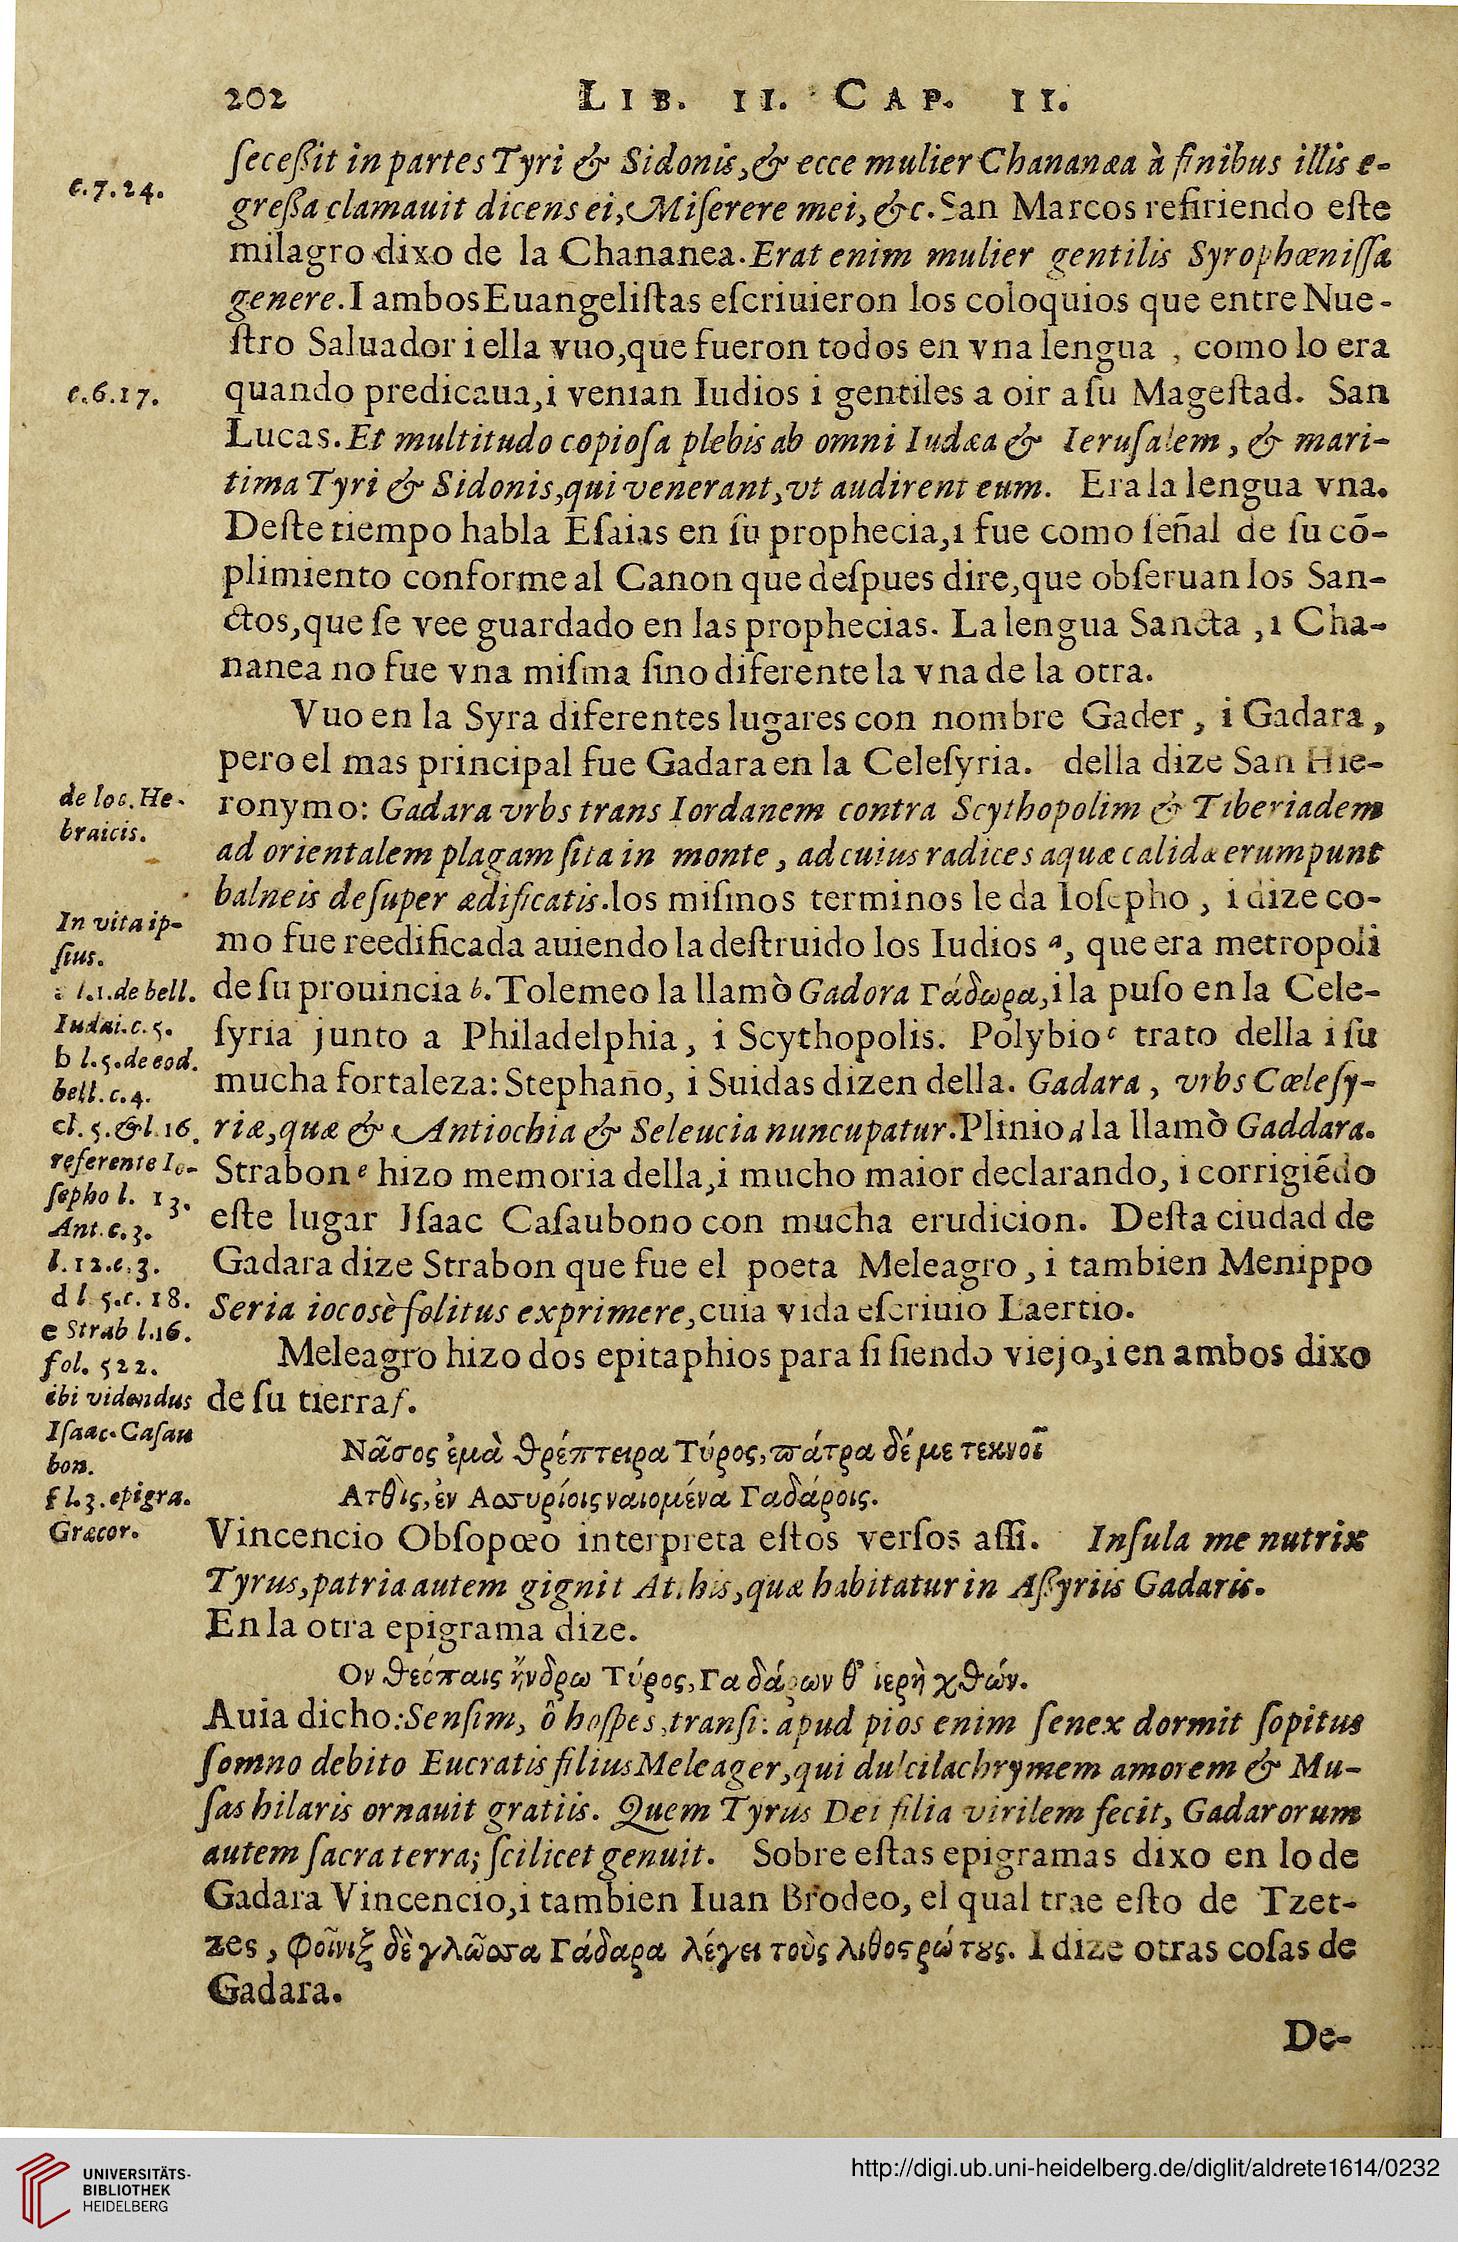 202 LIB. II. CAP. II.
ſeceßit in partes Tyri & Sidonis, & ecce mulier Chananæa à finibus illis e-
c.7.24.
greßa clamauit dicens ei, Miſerere mei, &c. San Marcos refiriendo eſte
milagro dixo de la Chananea. Erat enim mulier gentilis Syrophœniſſa
genere. I ambos Euangeliſtas eſcriuieron los coloquios que entre Nue-
ſtro Saluador i ella vuo, que fueron todos en vna lengua , como lo era
c.6.17.
quando predicaua, i venian Iudios i gentiles a oir a ſu Mageſtad. San
Lucas. Et multitudo copioſa plebis ab omni Iudæa & Ieruſalem , & mari-
tima Tyri & Sidonis, qui venerant, vt audirent eum. Era la lengua vna.
Deſte tiempo habla Eſaias en ſu prophecia, i fue como ſeñal de ſu cõ-
plimiento conforme al Canon que deſpues dire, que obſeruan los San-
ctos, que ſe vee guardado en las prophecias. La lengua Sancta , i Cha-
nanea no fue vna miſma ſino diferente la vna de la otra.
Vuo en la Syra diferentes lugares con nombre Gader , i Gadara ,
pero el mas principal fue Gadara en la Celeſyria. della dize San Hie-
de loc. He-
braicis.
ronymo: Gadara vrbs trans Iordanem contra Scythopolim & Tiberiadem
ad orientalem plagam ſita in monte , ad cuius radices aquæ calidæ erumpunt
balneis deſuper ædificatis. los miſmos terminos le da Ioſepho , i dize co-
In vita ip-
ſius.
mo fue reedificada auiendo la deſtruido los Iudios a, que era metropoli
l.1. de bell.
Iudai. c. 5.
b l.5. de eod.
bell. c. 4.
de ſu prouincia b. Tolemeo la llamò Gadora Γάδωρα, i la puſo en la Cele-
ſyria junto a Philadelphia , i Scythopolis. Polybio c trato della i ſu
mucha fortaleza: Stephano, i Suidas dizen della. Gadara , vrbs Cœleſy-
c l. 5. & l. 16.
referente Io-
ſepho l. 13.
Ant. c. 3.
l. 12. c. 3.
riæ, quæ & Antiochia & Seleucia nuncupatur. Plinio d la llamò Gaddara.
Strabon e hizo memoria della, i mucho maior declarando, i corrigiẽdo
eſte lugar Iſaac Caſaubono con mucha erudicion. Deſta ciudad de
Gadara dize Strabon que fue el poeta Meleagro , i tambien Menippo
d l 5. c. 18.
e Strab l. 16.
fol. 522.
ibi videndus
Iſaac Caſau
bon.
Seria iocosè ſolitus exprimere, cuia vida eſcriuio Laertio.
Meleagro hizo dos epitaphios para ſi ſiendo viejo, i en ambos dixo
de ſu tierra f.
f l. 3. epigra.
Græcor.
Νᾶσος ἐμὰ θρέπτειρα Τύρος, πάτρα δέ με τεκνοῖ
Ατθὶς, ἐν Ασσυρίοις ναιομένα Γαδάροις.
Vincencio Obſopœo interpreta eſtos verſos aſſi. Inſula me nutrix
Tyrus, patria autem gignit Athis, quæ habitatur in Aßyriis Gadaris.
En la otra epigrama dize.
Ον θεόπαις ἤνδρω Τύρος, Γαδάρων θ' ἱερὴ χθών.
Auia dicho: Senſim, ô hoſpes, tranſi: apud pios enim ſenex dormit ſopitus
ſomno debito Eucratis filius Meleager, qui dulcilachrymem amorem & Mu-
ſas hilaris ornauit gratiis. Quem Tyrus Dei filia virilem fecit, Gadarorum
autem ſacra terra; ſcilicet genuit. Sobre eſtas epigramas dixo en lo de
Gadara Vincencio, i tambien Iuan Brodeo, el qual trae eſto de Tzet-
zes , Φοῖνιξ δὲ γλῶσσα Γάδαρα λέγει τοὺς λιθοστρώτους. I dize otras coſas de
Gadara.
De-
UNIVERSITÄTS-
BIBLIOTHEK
HEIDELBERG
http://digi.ub.uni-heidelberg.de/diglit/aldrete1614/0232